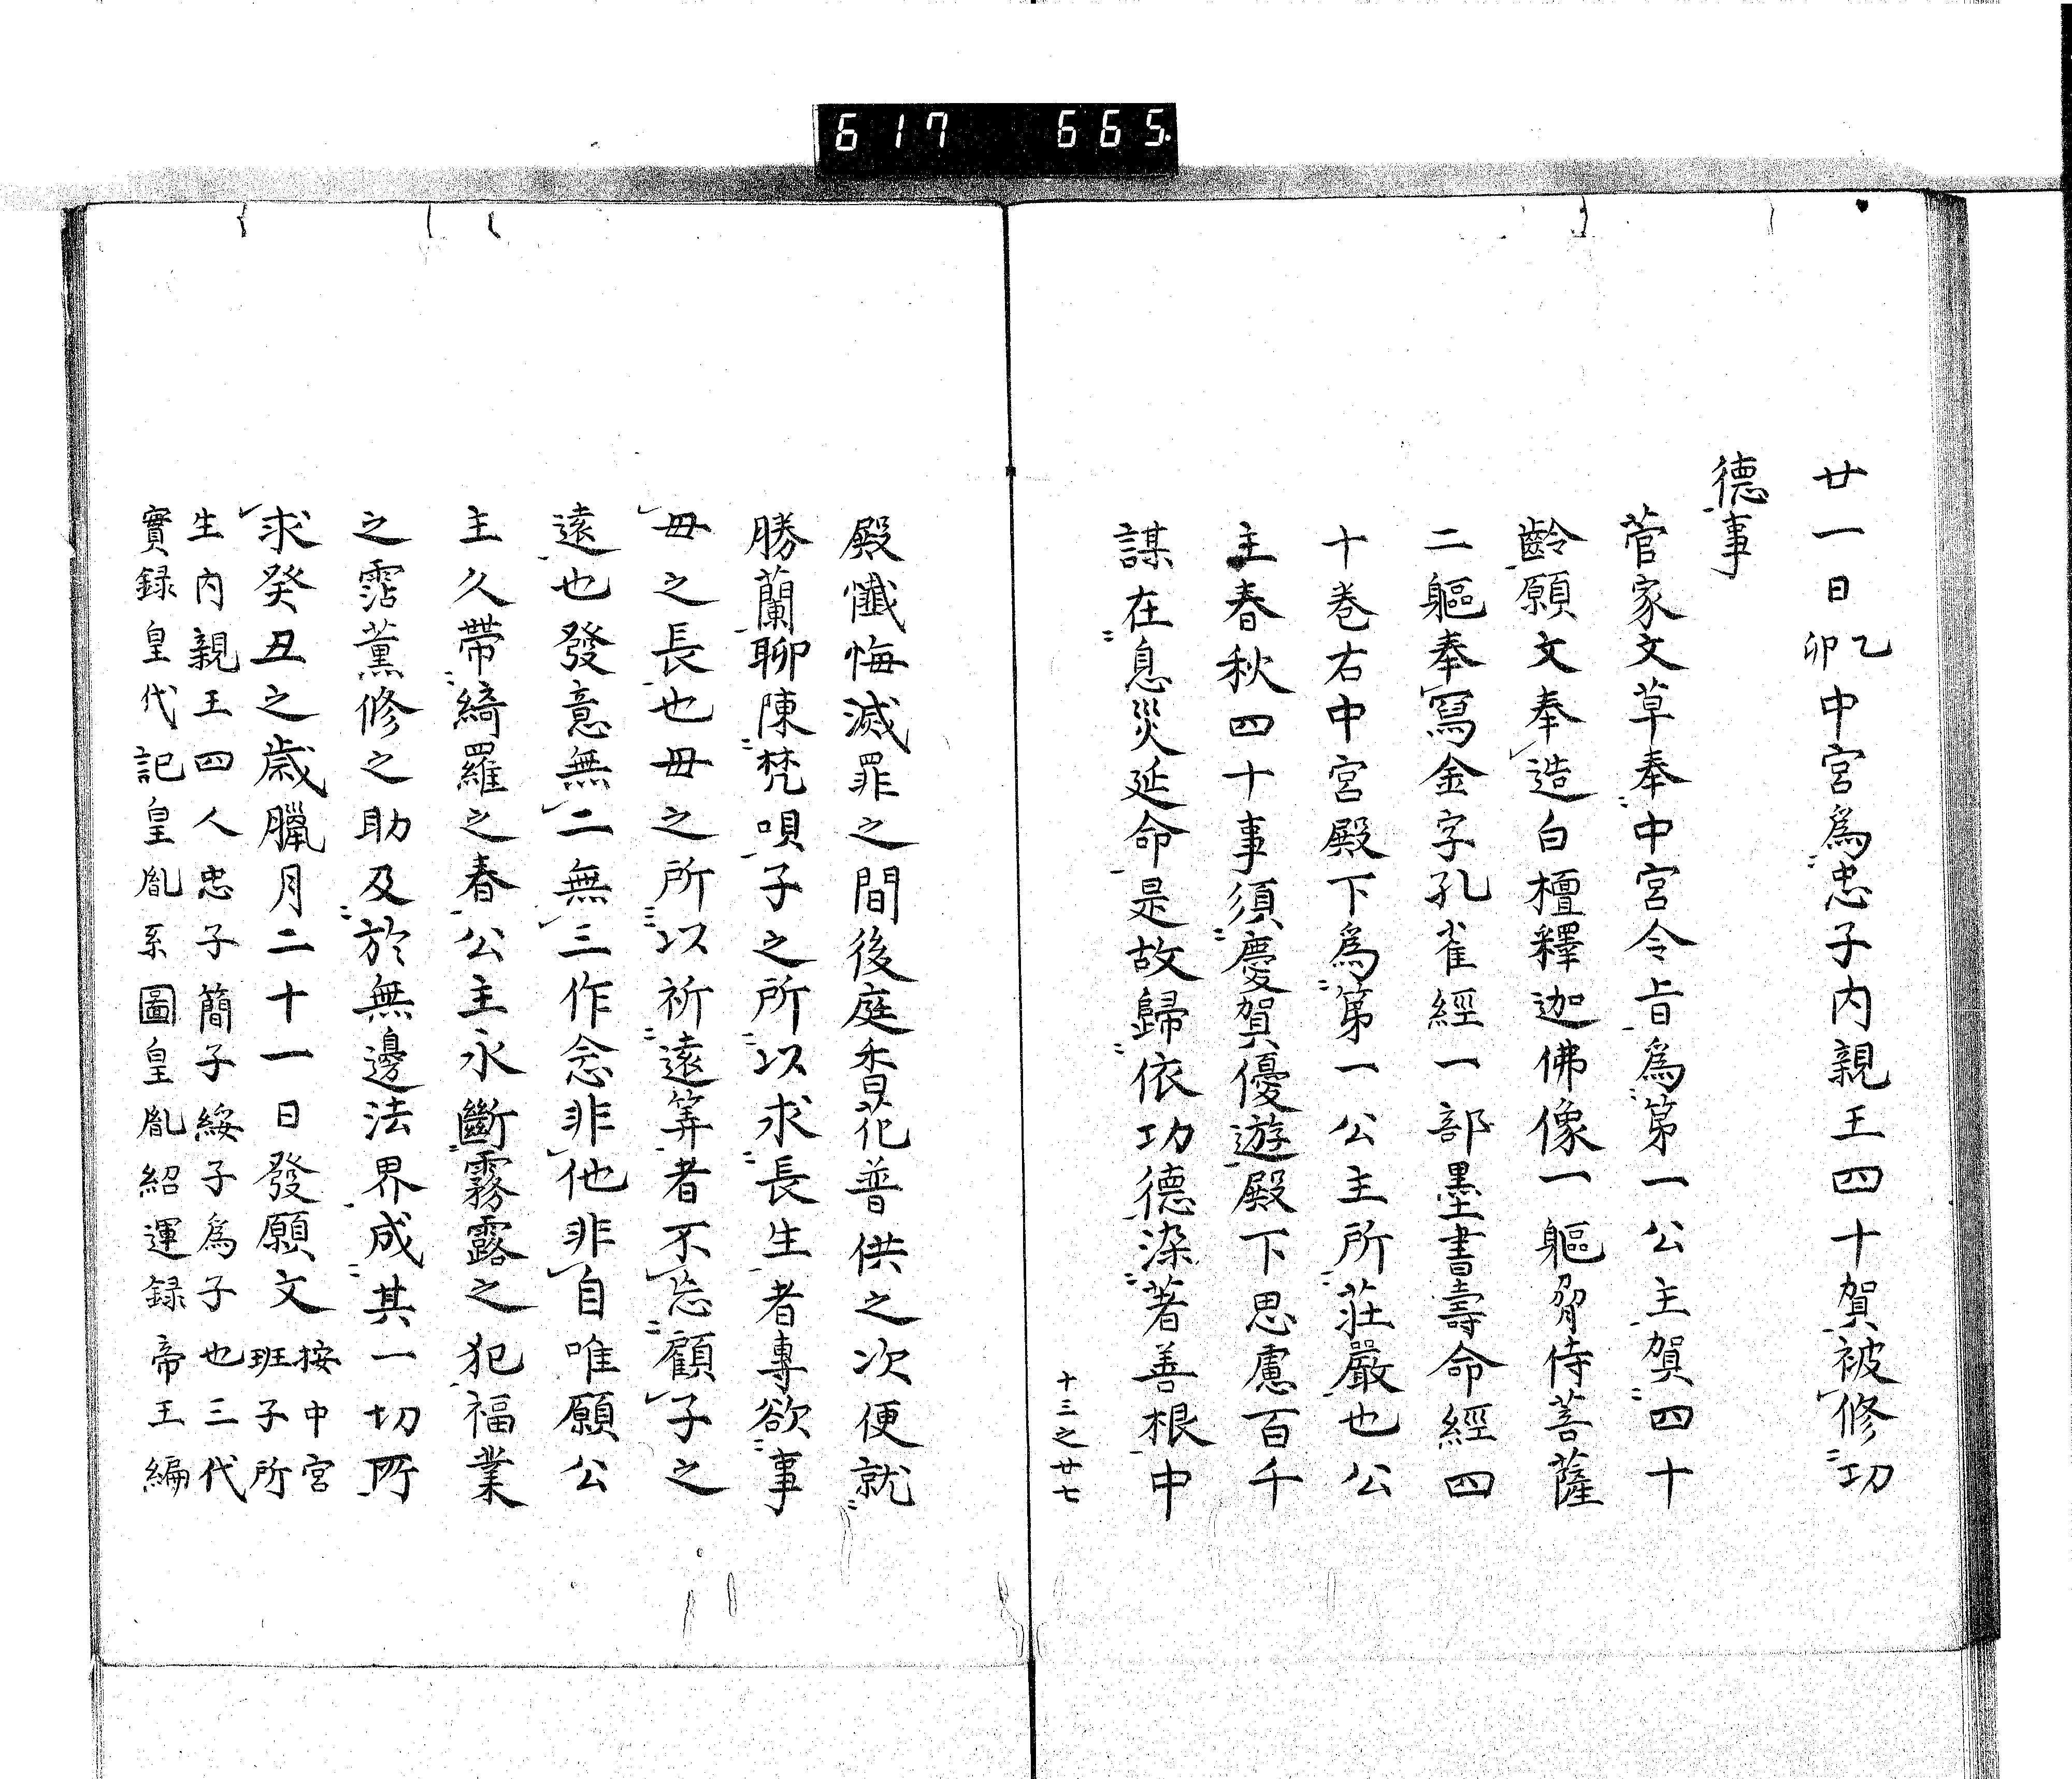 617 665.
廿一日乙卯中宮爲忠子内親王四十賀被修功
德事
菅家文草奉中宮令旨爲第一公主賀四十
齡願文奉造白檀釋迦佛像一軀脅侍菩薩
二軀奉寫金字孔雀經一部墨書壽命經四
十卷右中宮殿下爲第一公主所莊嚴也公
主春秋四十事須慶賀優遊殿下思慮百千
謀在息災延命是故歸依功德染著善根中
十三之廿七
殿懺悔滅罪之間後庭香花普供之次便就
勝蘭聊陳梵唄子之所以求長生者專欲事
毋之長也毋之所以祈遠筭者不忘顧子之
遠也發意無二無三作念非他非自唯願公
主久帶綺羅之春公主永斷霧露之犯福業
之霑薫修之助及於無邊法界成其一切所
求癸丑之歲臘月二十一日發願文按中宮班子所
生内親王四人忠子簡子綏子爲子也三代
實録皇代記皇胤系圖皇胤紹運録帝王編